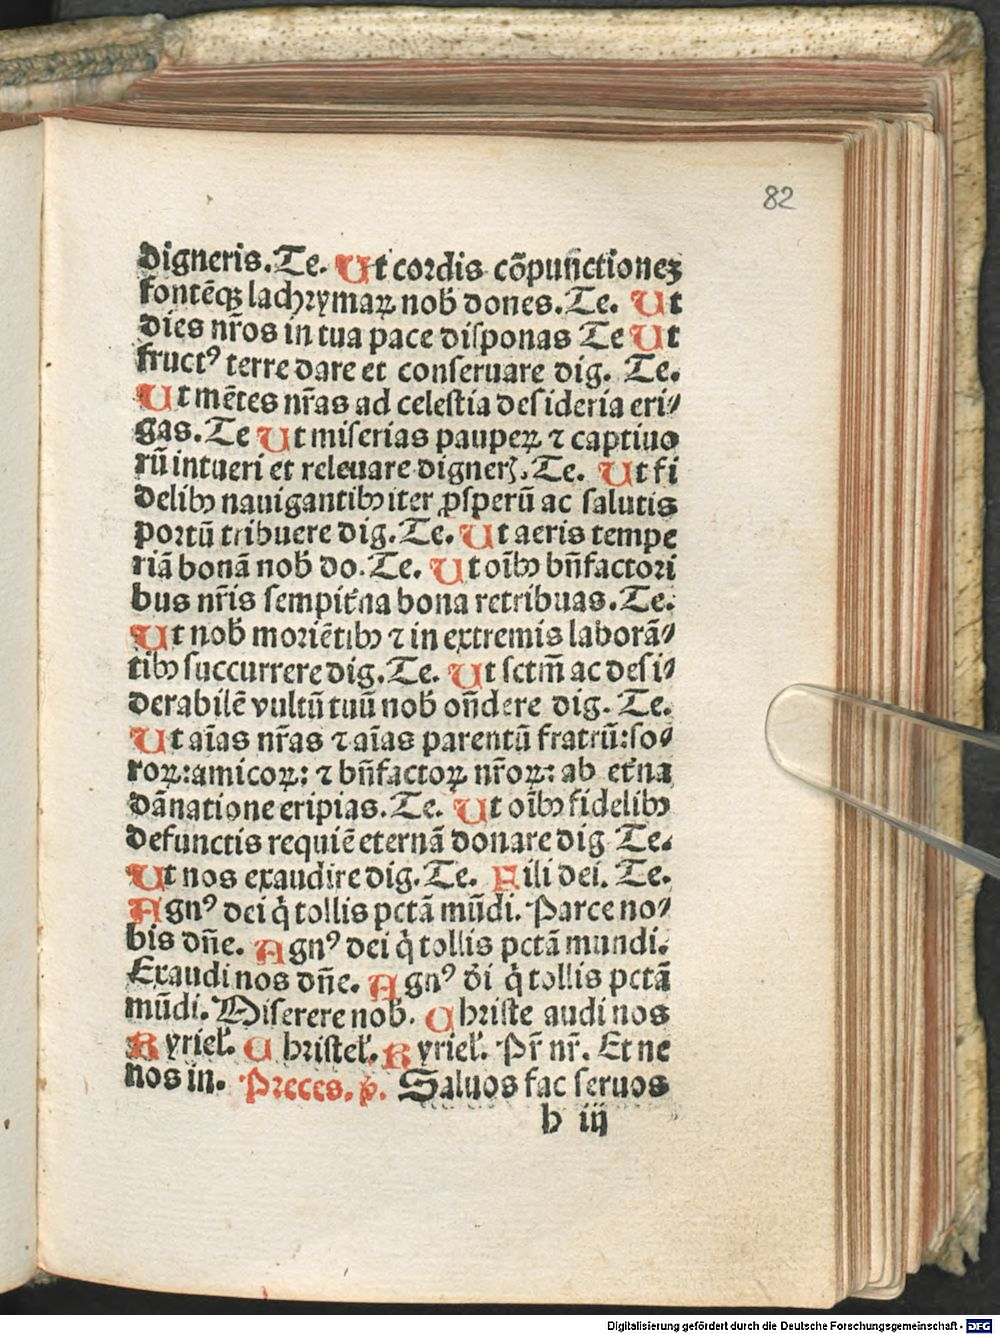 82
digneris. Te. Ut cordis cõpunctionez
fontẽqꝫ lachrymaꝝ nob̃ dones. Te. Ut
dies nr̃os in tua pace diſponas Te Ut
fructꝰ terre dare et conſeruare dig. Te.
Ut mẽtes nr̃as ad celeſtia deſideria eri⸗
gas. Te Ut miſerias paupeꝝ ⁊ captiuo
rũ intueri et releuare digner̃. Te. Ut fi
delibꝫ nauigantibꝫ iter ꝓſperũ ac ſalutis
portũ tribuere dig. Te. Ut aeris tempe
riã bonã nob̃ do. Te. Ut oĩbꝫ bñfactori
bus nr̃is ſempit̃na bona retribuas. Te.
Ut nob̃ moriẽtibꝫ ⁊ in extremis laborã⸗
tibꝫ ſuccurrere dig. Te. Ut ſctm̃ ac deſi⸗
derabilẽ vultũ tuũ nob̃ oñdere dig. Te.
Ut aĩas nr̃as ⁊ aĩas parentũ fratrũ: ſo⸗
roꝝ: amicoꝝ: ⁊ bñfactoꝝ nr̃oꝝ: ab et̃na
dãnatione eripias. Te. Ut oĩbꝫ fidelibꝫ
defunctis requiẽ eternã donare dig Te.
Ut nos exaudire dig. Te. Fili dei. Te.
Agnꝰ dei q̇ tollis pctã mũdi. Parce no⸗
bis dñe. Agnꝰ dei q̇ tollis pctã mundi.
Exaudi nos dñe. Agnꝰ dĩ q̇ tollis pctã
mũdi. Miſerere nob̃. Chriſte audi nos
Kyriel̃. Chriſtel̃. Kyriel̃. Pr̃ nr̃. Et ne
nos in. Preces. p̃. Saluos fac ſeruos
h iij
Digitalisierung gefördert durch die Deutsche Forschungsgemeinschaft - DFG